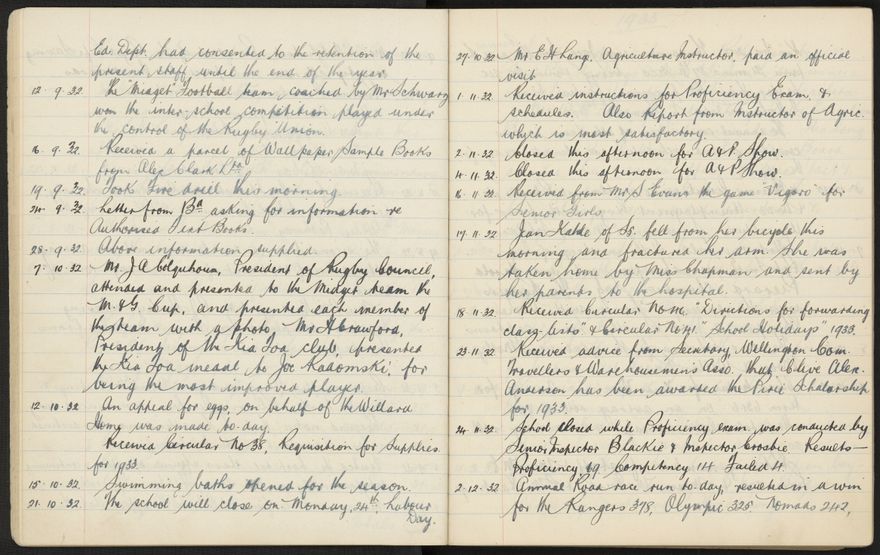 Ed. Dept. had consented to the retention of the
present staff until the end of the year.
12. 9. 32. The "Midget" Football team, coached by Mr Schwarz
won the inter-school competition played under
the control of the Rugby Union.
16. 9. 32 Received a parcel of Wallpaper Sample Books
from Alex Clark Ltd.
19. 9. 32 Took Fire drill this morning.
24. 9. 32 Letter from Bd asking for information re
Authorised Text Books.
28. 9. 32 Above information supplied.
7. 10. 32 Mr. J A Colquhoun, President of Rugby Council,
attended and presented to the Midget team the
M. & G. Cup, and presented each member of
the team with a photo. Mr A Crawford,
President of the Kia Toa club, presented
the Kia Toa medal to Joe Radomski, for
being the most improved player.
12. 10. 32 An appeal for eggs, on behalf of the Willard
Home was made to-day.
Received Circular No 38, Requisition for Supplies
for 1933.
15. 10. 32 Swimming baths opened for the season.
21. 10. 32 The school will close on Monday, 24th, Labour
Day.
27. 10. 32 Mr E H Lang, Agriculture Instructor, paid an official
visit
1. 11. 32 Received instructions for Proficiency Exam. &
schedules. Also Report from Instructor of Agric.
which is most satisfactory.
2. 11. 32 Closed this afternoon for A & P Show.
4. 11. 32 Closed this afternoon for A & P Show.
16. 11. 32 Received from Mr S Evans the game "Vigoro" for
Senior Girls.
17. 11. 32 Jean of S5. fell from her bicycle this
morning and fractured her arm. She was
taken home by Miss Chapman and sent by
her parents to the hospital.
18. 11. 32 Received Circular No "Directions for forwarding
class lists" & Circular No "School Holidays" 1933.
23. 11. 32 Received advice from Secretary, Wellington Com.
Travellers & Warehousemen's Asso. that Clive Alex.
Anderson has been awarded the Pirie Scholarship
for 1933.
24. 11. 32 School closed while Proficiency exam. was conducted by
Senior Inspector Blackie & Inspector Crosbie. Results—
Proficiency 69 Competency 14 Failed 4.
2. 12. 32 Annual Road race run to-day, resulted in a win
for the Rangers 378, Olympic 325 Nomads 242,